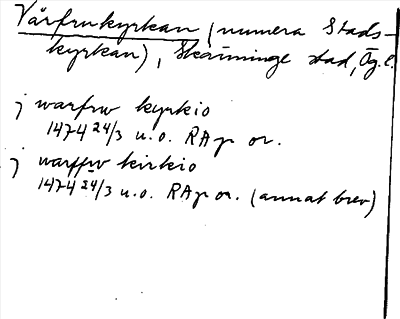 Vårfrukyrkan (numera Stads-
kyrkan), Skänninge stad, Ög. l.
j warfrw kyrkio
1474 24/3 u.o. RAp or.
j warffrw kirkio
1474 24/3 u.o. RAp or. (annat brev)